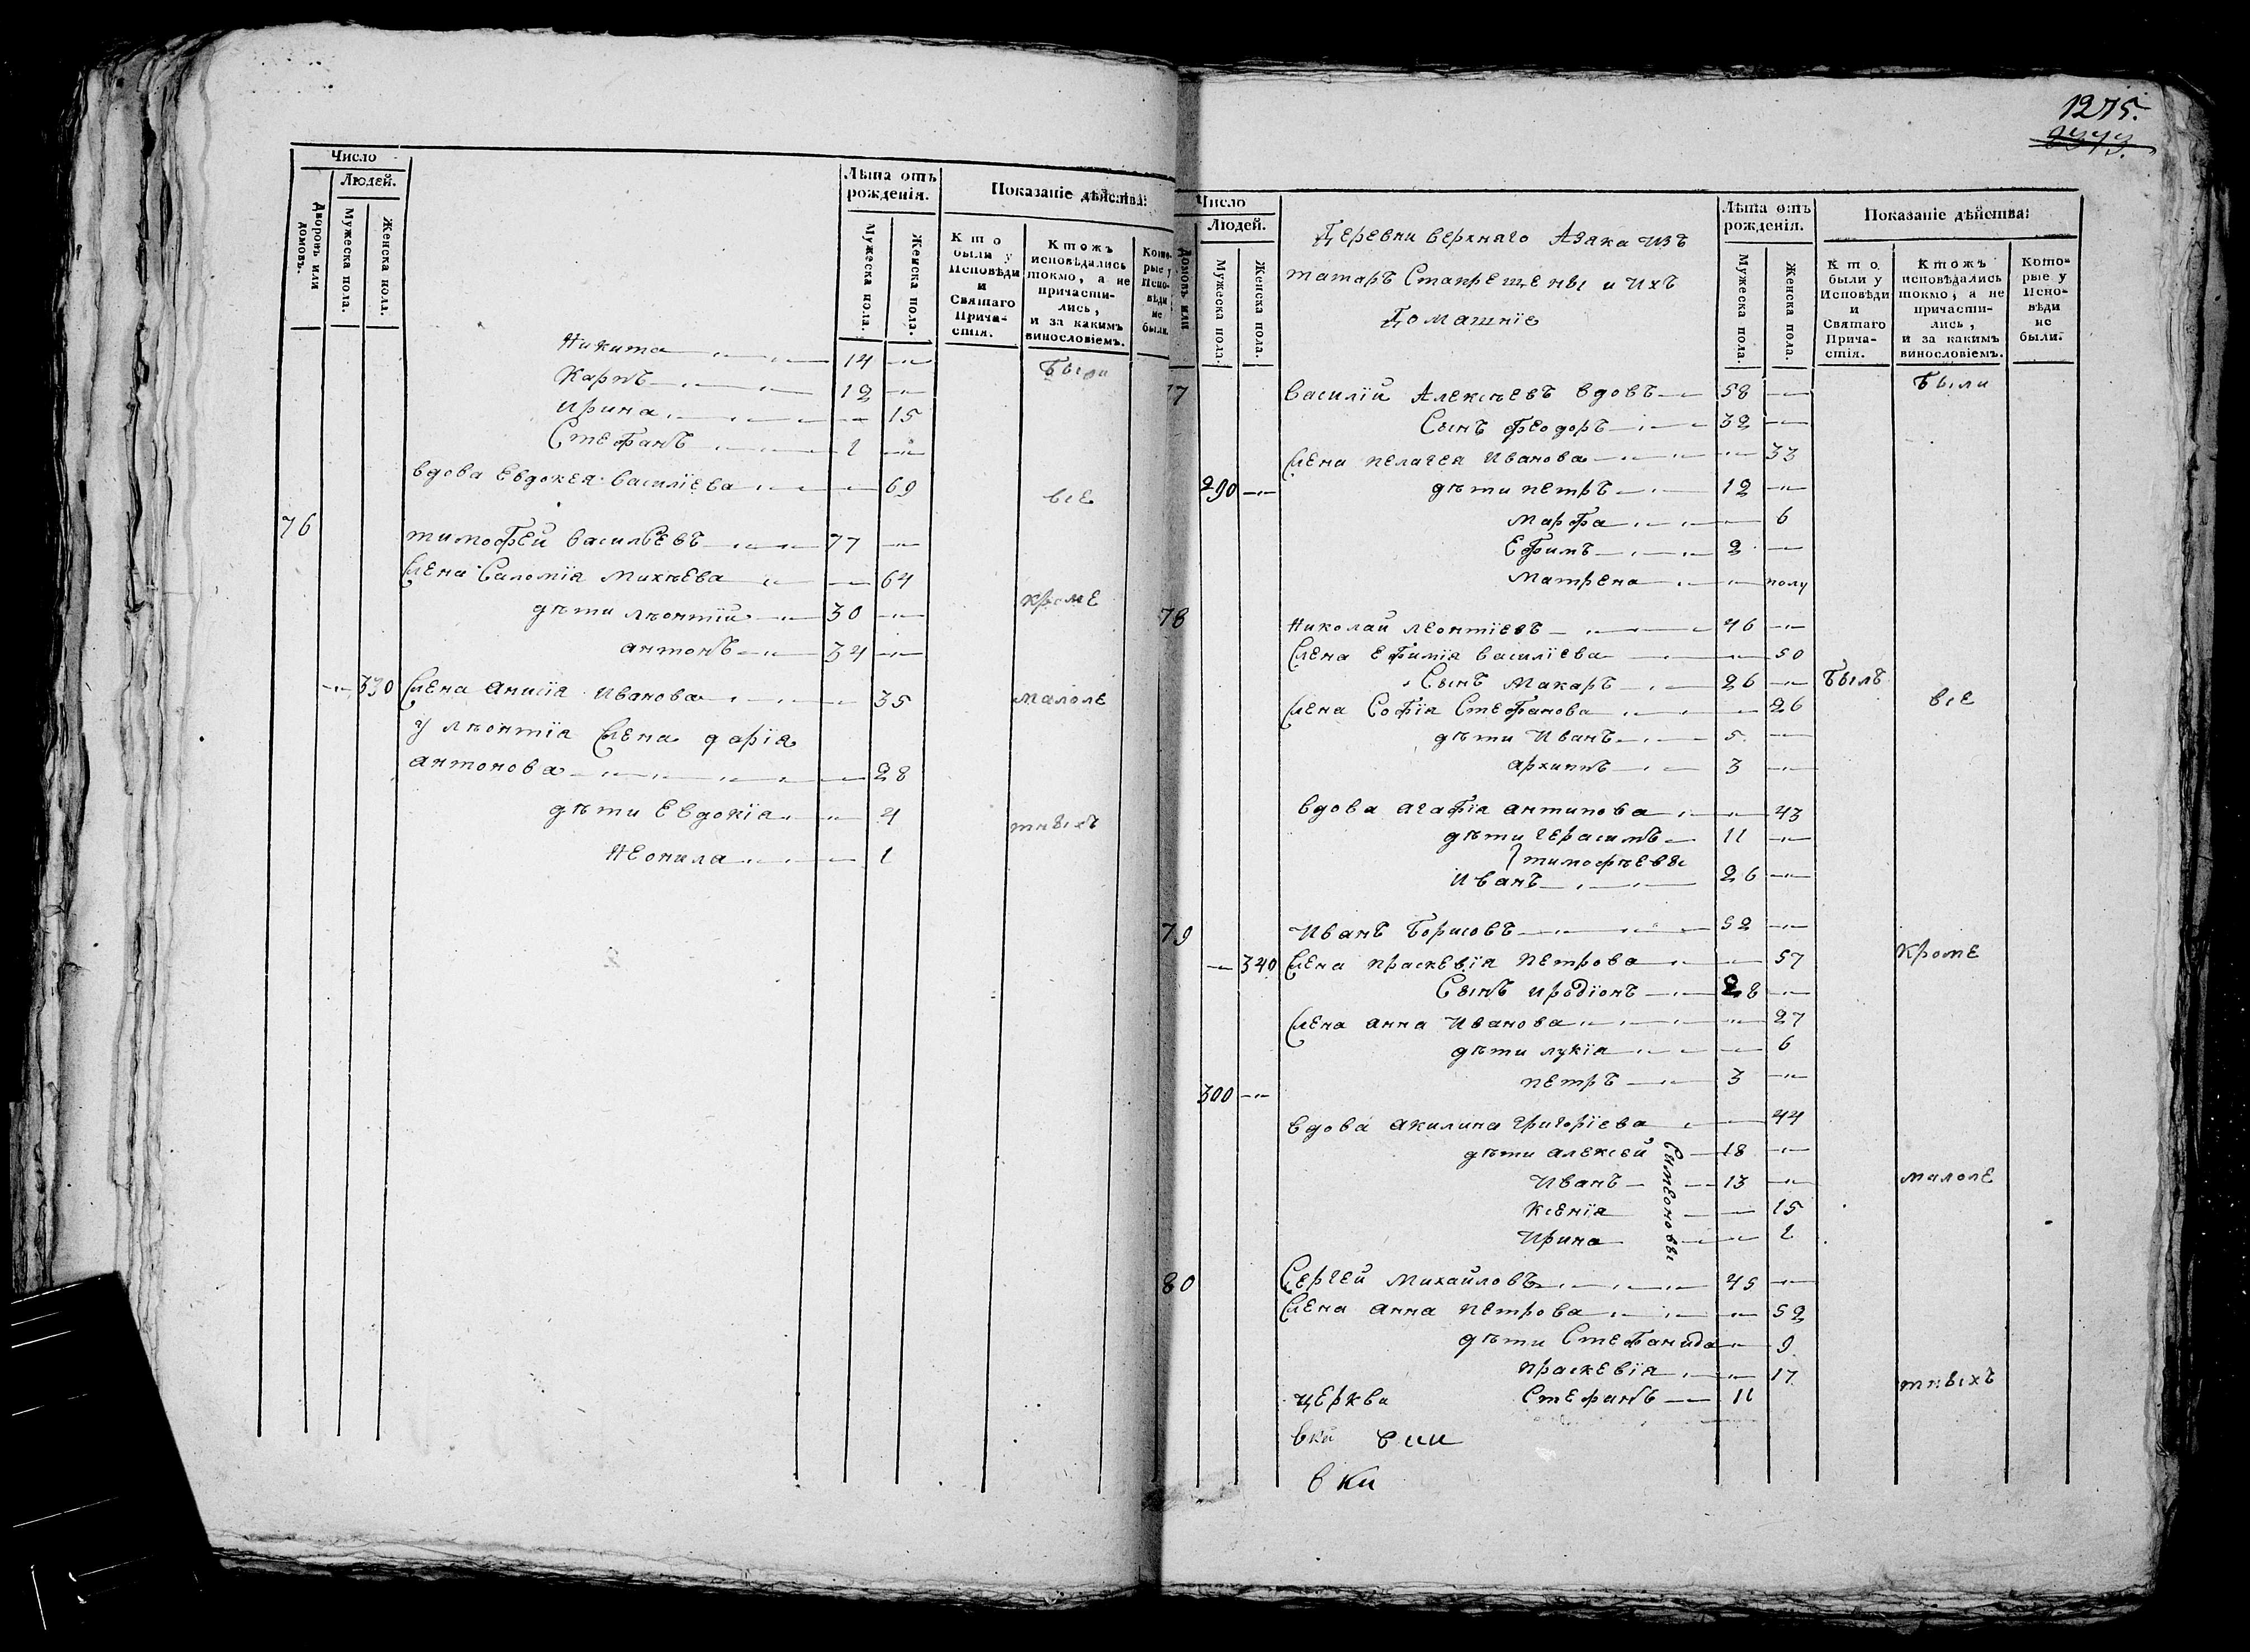 Число
Людей.
Дворовъ или домовъ.
Мужеска пола.
Женска пола.
Лѣта отъ рожденія.
Мужеска пола.
Женска пола.
Показаніе дѣйства:
Кто были у Исповѣди и Святаго Прича-стія.
Ктожъ исповѣдались токмо, а не причасти-лись, и за какимъ винословіемъ.
Кото-рые у Испо-вѣди не были.
Никита 14 были
Карпъ 12
Ирина 15
Стефанъ 1
вдова Евдокея Василіева 69 все
76 тимофей васильевъ 77
Жена Саломія Михѣева 64 кроме
дѣти лѣонтій 30
антонъ 34
330 Жена Анисія Иванова 35 малоле
У лѣонтія Жена дарія
антонова 28
дѣти Евдокія 4 тныхъ
Неонила 1
1275.
Число
Людей.
Домовъ или
Мужеска пола.
Женска пола.
Деревни верхняго Азяка изъ
татаръ Старещены и Ихъ
Домашніе
Лѣта отъ рожденія.
Мужеска пола.
Женска пола.
Показаніе дѣйства:
Кто были у Исповѣди и Святаго Прича-стія.
Ктожъ исповѣдались токмо, а не причасти-лись, и за какимъ винословіемъ.
Кото-рые у Испо-вѣди не были.
77 Василій Алексѣевъ вдовъ 58 были
Сынъ Феодоръ 32
Жена пелагея Иванова 33
290 дѣти петръ 12
Марфа 6
Ефимъ 2
Матрена полу
78 Николай леонтіевъ 46
Жена Ефимія василіева 50
Сынъ Макаръ 26 былъ
Жена Софія Стефанова 26 все
дѣти Иванъ 5
архипъ 3
вдова агафія антипова 43
дѣти герасимъ 11
тимофѣевы
Иванъ 26
79 Иванъ Борисовъ 52
340 Жена праскевія петрова 57 кроме
Сынъ иродіонъ 28
Жена анна Иванова 27
дѣти лукія 6
300 петръ 3
вдова акилина григоріева 44
дѣти алексей 18
Симеоновы
Иванъ 13 малоле
Ксенія 15
Ирина 1
80 Сергей Михайловъ 45
Жена анна петрова 52
дѣти Стефанида 9
праскевія 17 тныхъ
церква Стефанъ 11
в ки